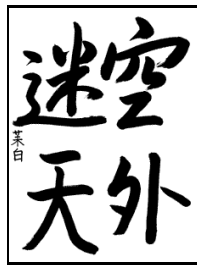 空外
迷天
茉白